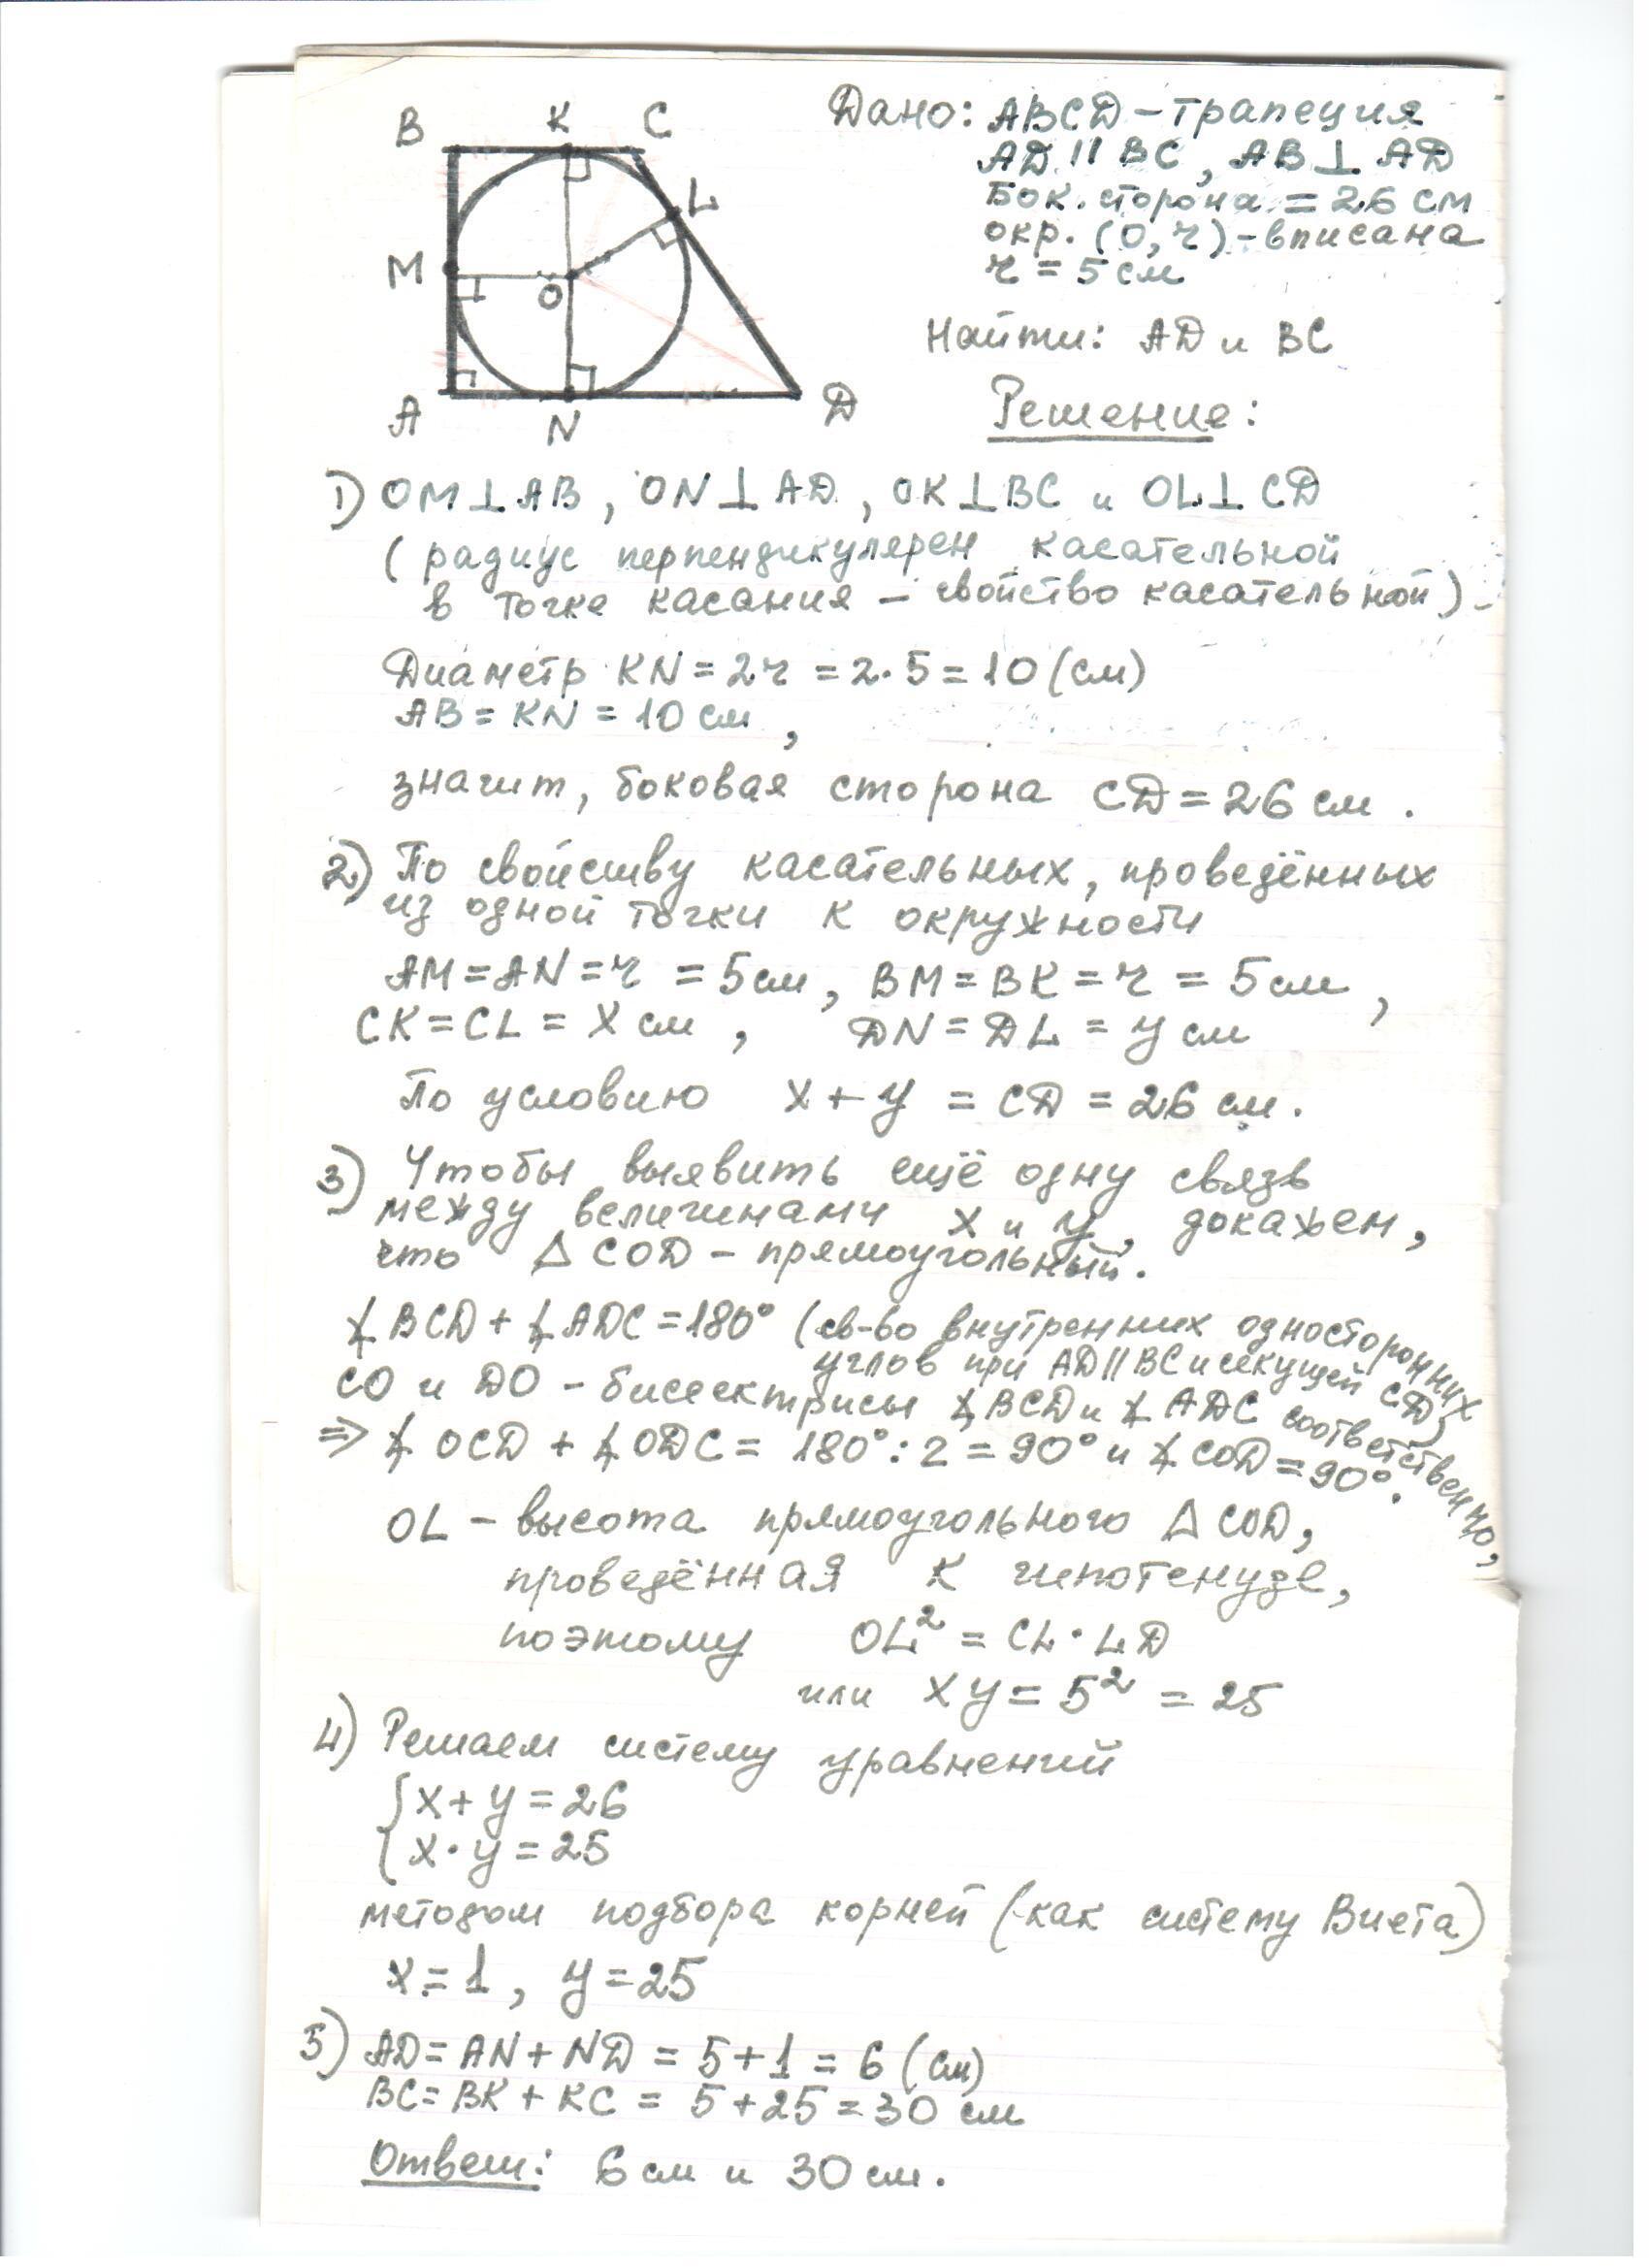 B K C
L
M
O
A N D
Дано: ABCD – трапеция
AD || BC, AB ⊥ AD
Бок. сторона = 26 см
окр. (O, r) – вписана
r = 5 см
Найти: AD и BC
Решение:
1) OM ⊥ AB, ON ⊥ AD, OK ⊥ BC и OL ⊥ CD
(радиус перпендикулярен касательной
в точке касания – свойство касательной)
Диаметр KN = 2r = 2·5 = 10 (см)
AB = KN = 10 см,
значит, боковая сторона CD = 26 см.
2) По свойству касательных, проведённых
из одной точки к окружности
AM = AN = r = 5 см, BM = BK = r = 5 см,
CK = CL = x см, DN = DL = y см
По условию x + y = CD = 26 см.
3) Чтобы выявить ещё одну связь
между величинами x и y, докажем,
что △ COD – прямоугольный.
∡ BCD + ∡ ADC = 180° (св-во внутренних односторонних
углов при AD || BC и секущей CD)
CO и DO – биссектрисы ∡ BCD и ∡ ADC соответственно,
⇒ ∡ OCD + ∡ ODC = 180° : 2 = 90° и ∡ COD = 90°.
OL – высота прямоугольного △ COD,
проведённая к гипотенузе,
поэтому OL² = CL · LD
или xy = 5² = 25
4) Решаем систему уравнений
{ x + y = 26
{ x · y = 25
методом подбора корней (как систему Виета)
x = 1, y = 25
5) AD = AN + ND = 5 + 1 = 6 (см)
BC = BK + KC = 5 + 25 = 30 см
Ответ: 6 см и 30 см.